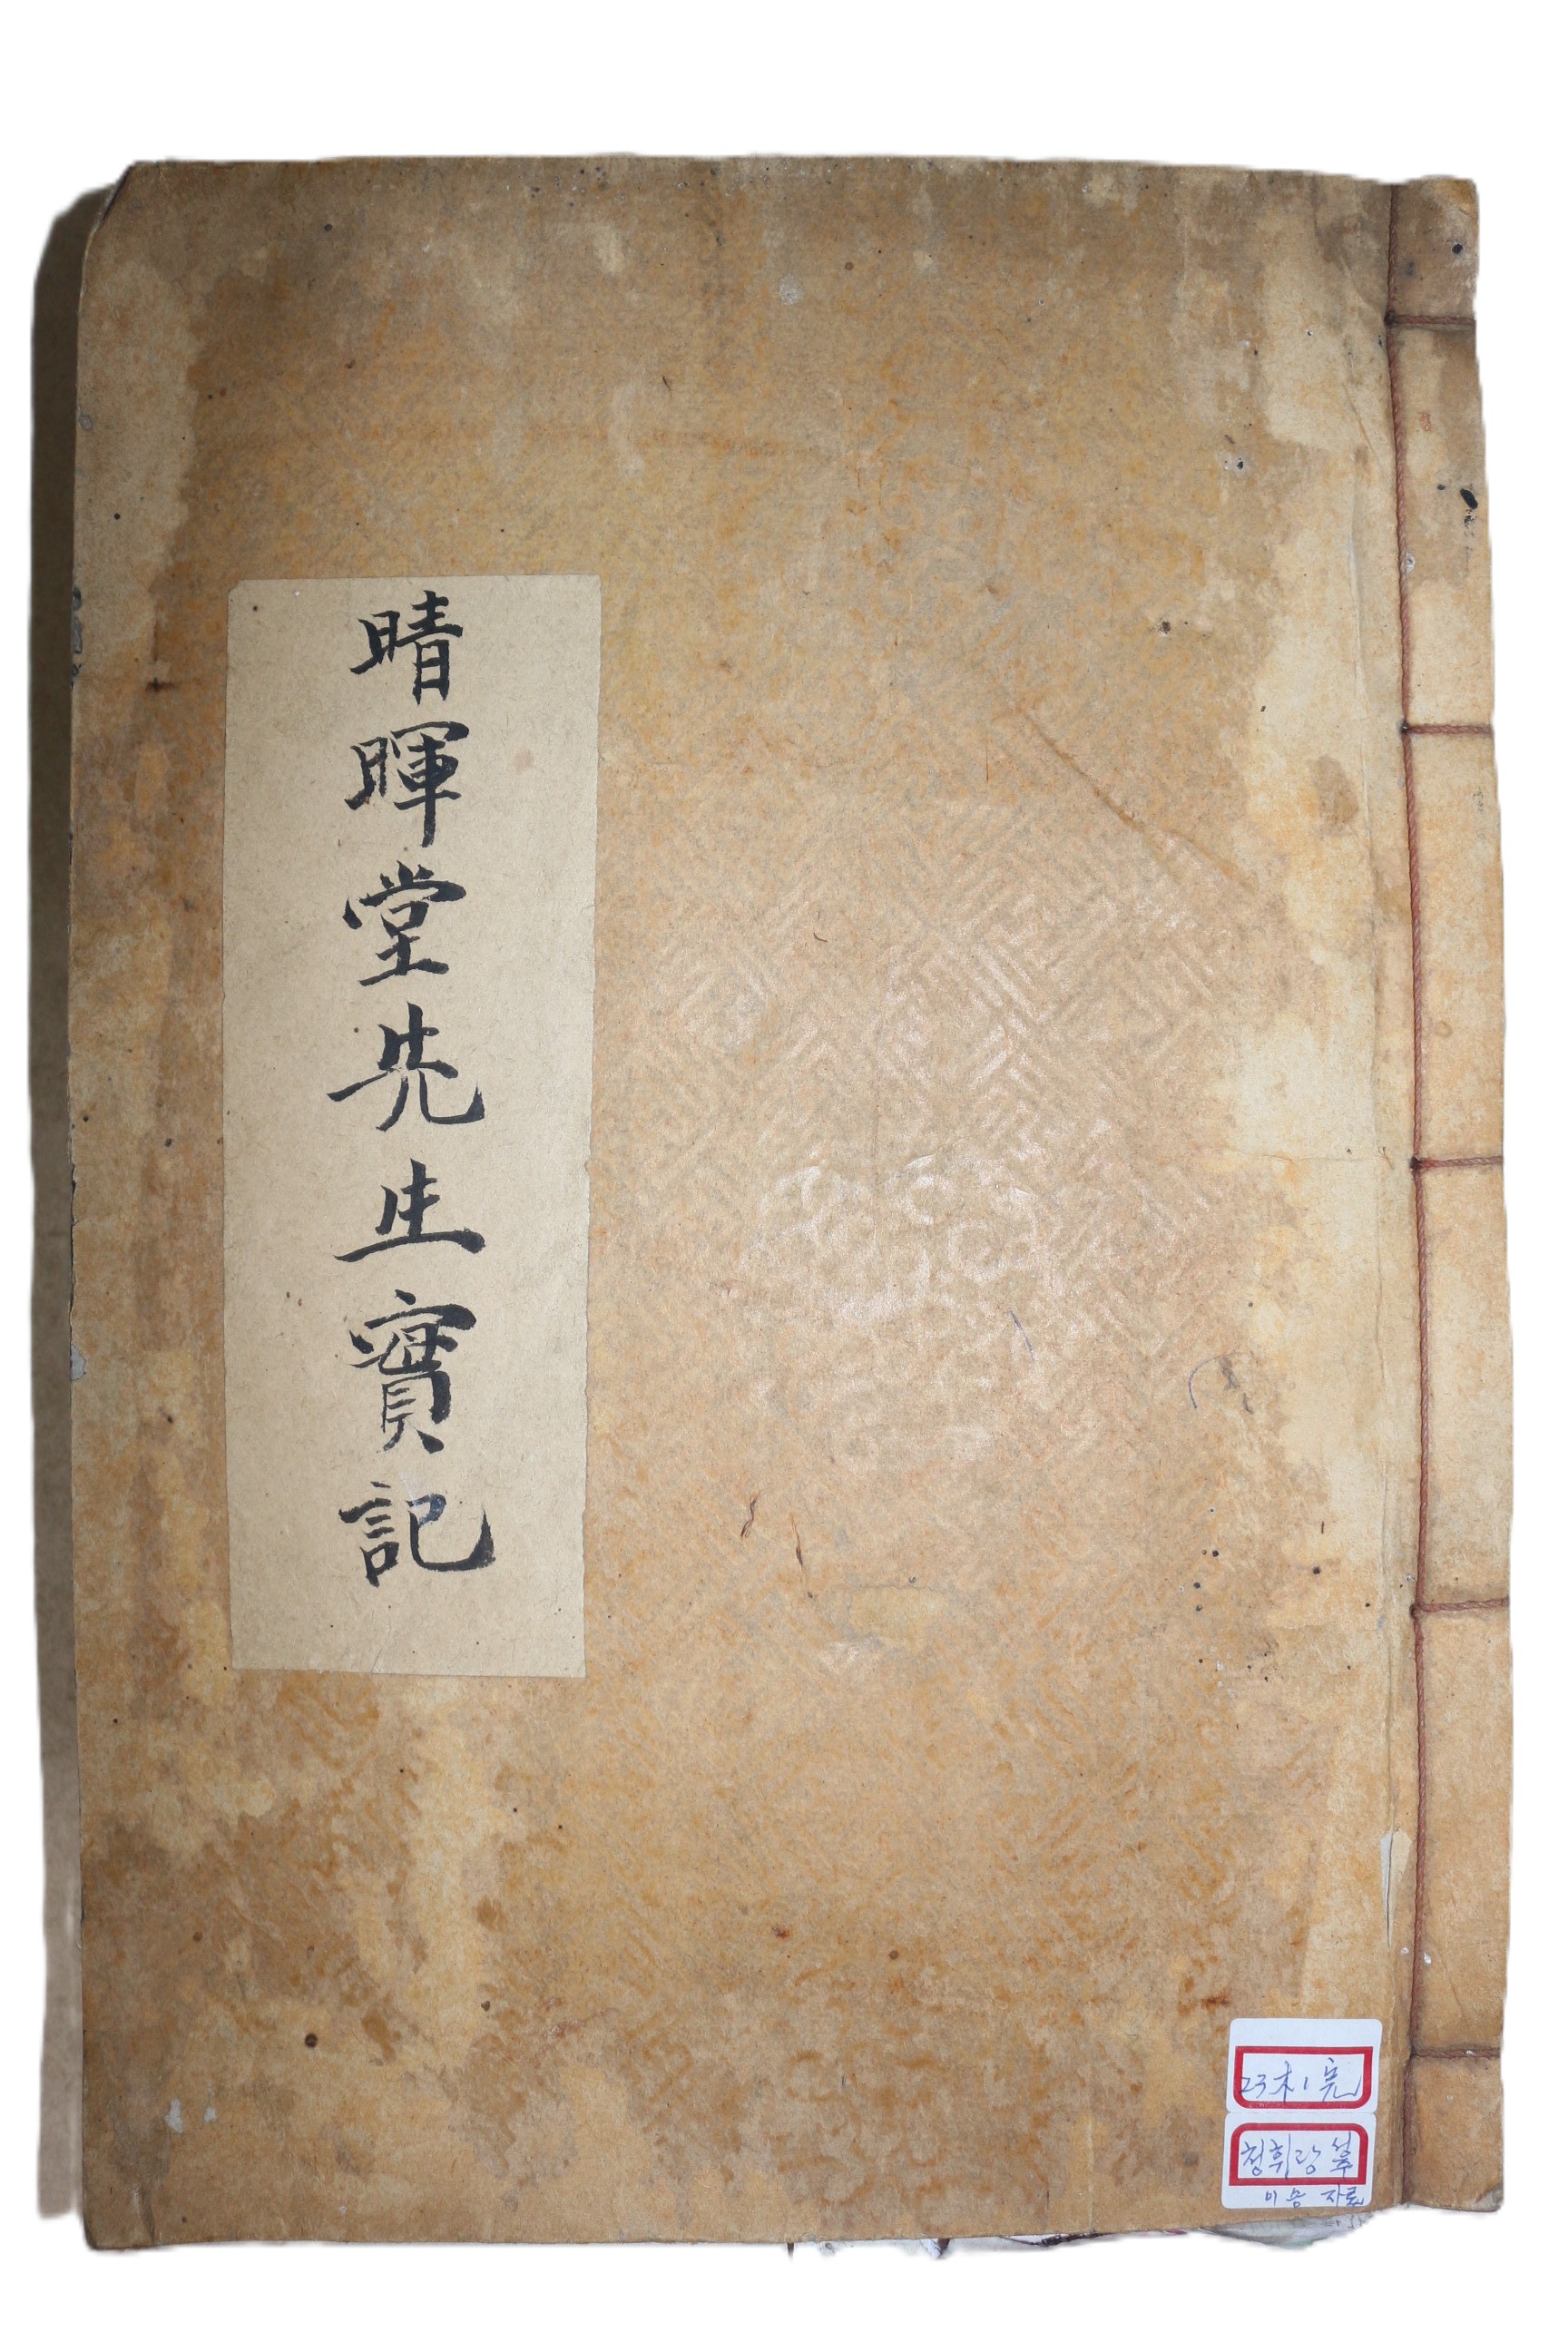 晴暉堂先生實記
23木1完
청휘당
이숭 자료